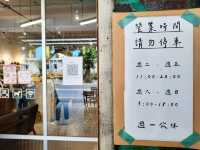 營業時間
請勿停車
週二-週五
11:00-20:00
週六、週日
9:00-18:00
週一公休